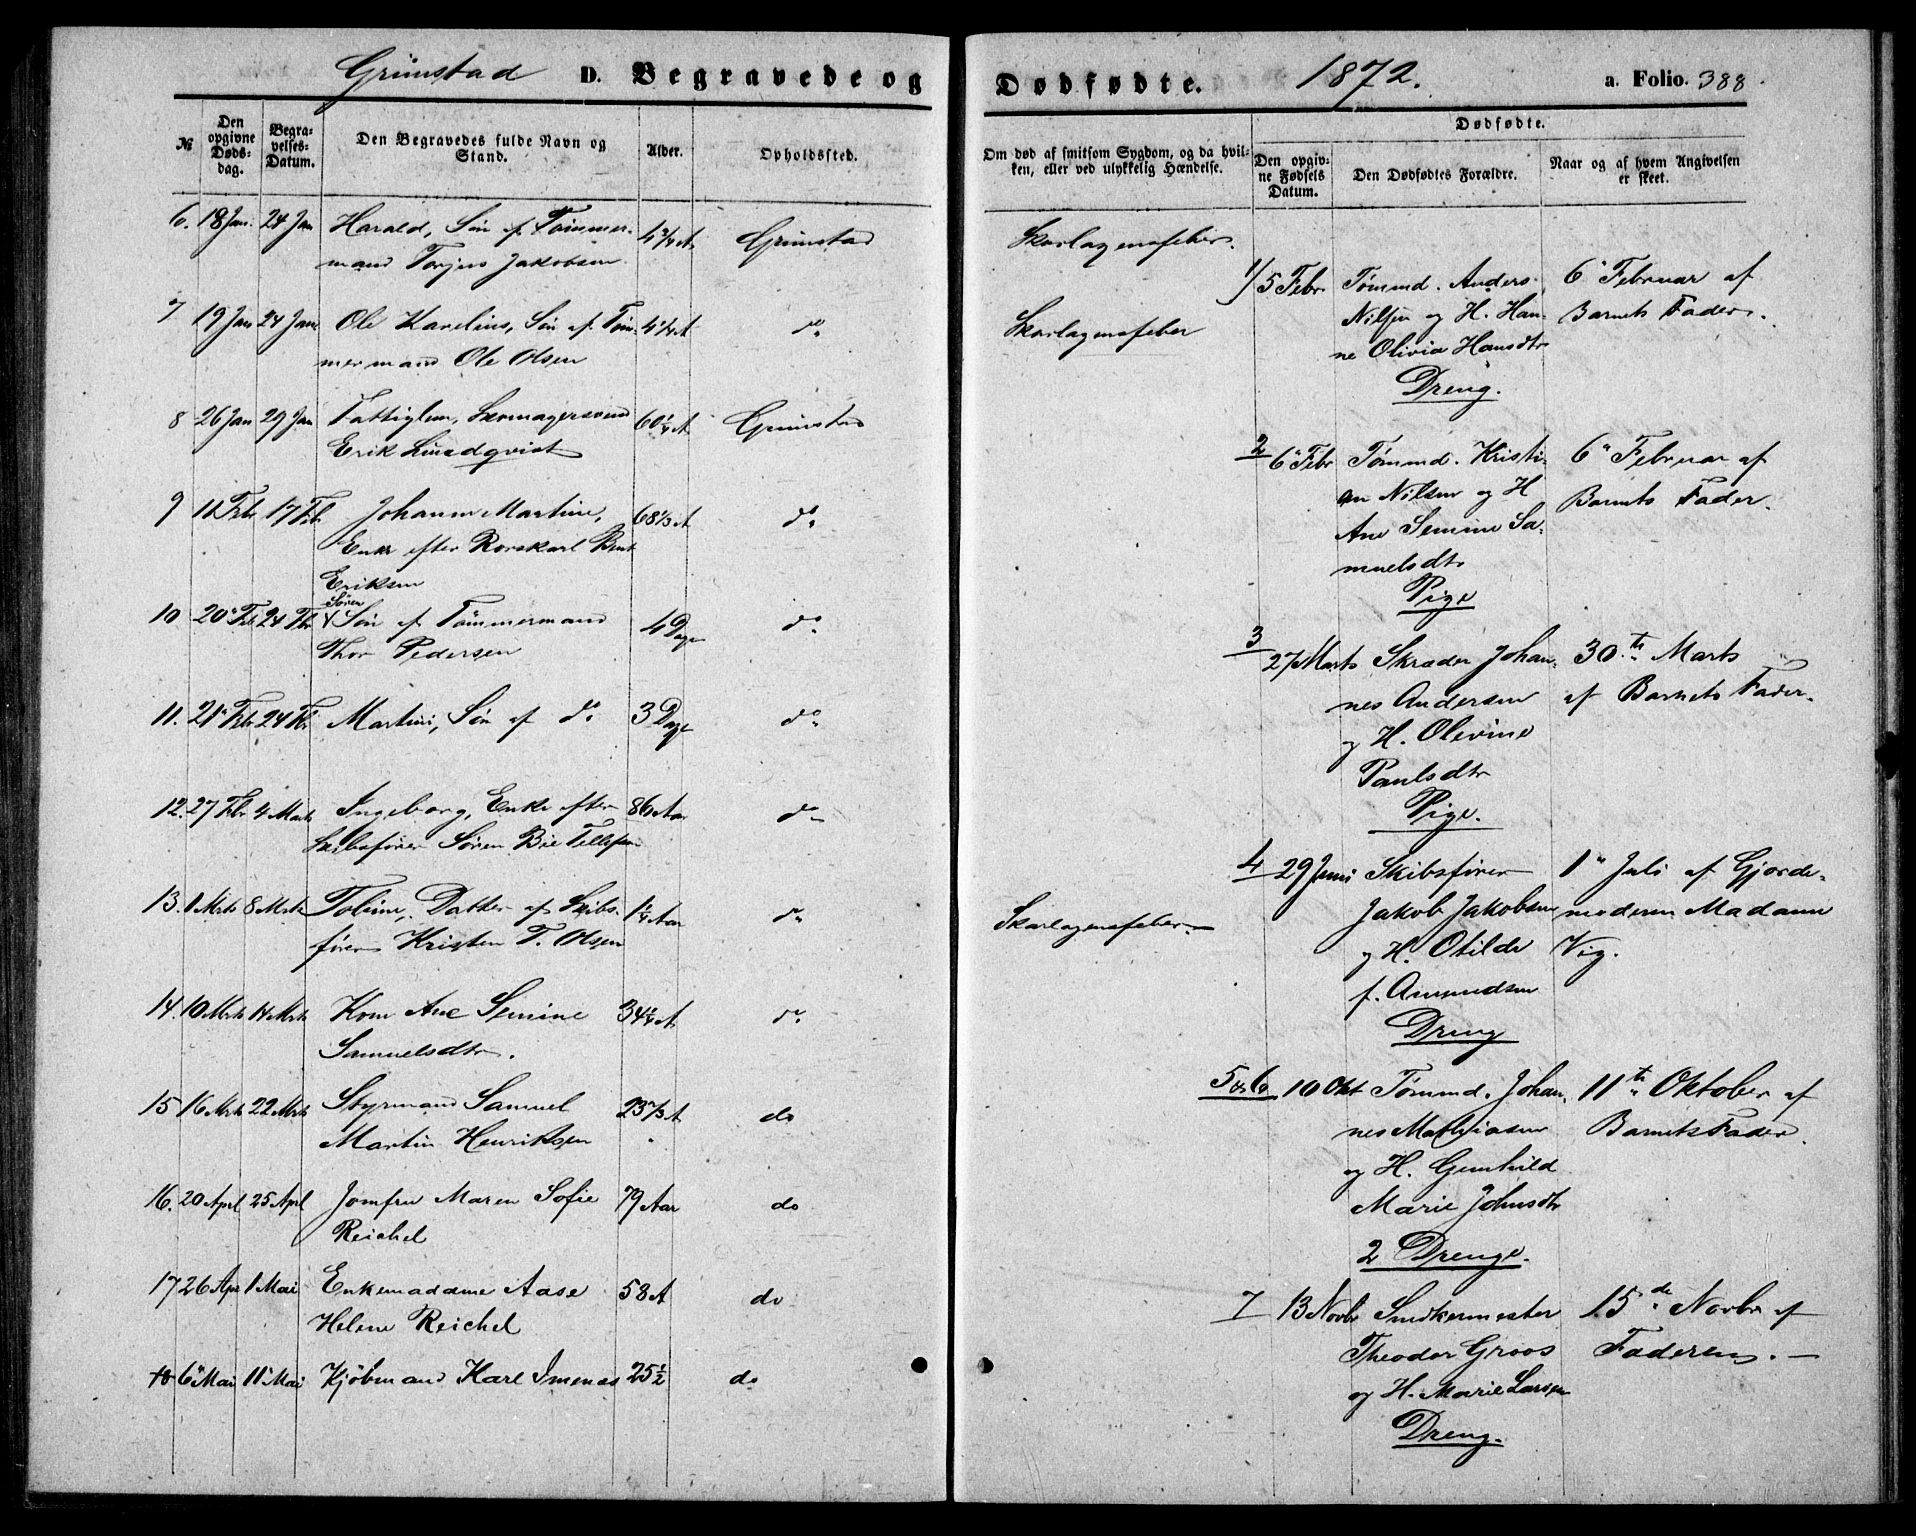 Grimstad D. Begravede og
№
Den opgivne Døds-dag.
Begra-velses-Datum.
Den Begravedes fulde Navn og Stand.
Alder.
Opholdssted.
6. 18 Jan. 24 Jan Harald, Søn af Tømmer- 4 3/4 A Grimstad
mand Torjus Jakobsen
7 19 Jan 24 Jan Ole Karelius, Søn af Tøm- 4 1/4 A do
mermand Ole Olsen
8 26 Jan 29 Jan Fattiglem, Skomagersvend 60 1/4 A Grimstad
Erik Lindqvist
9 11 Febr 17 Febr Johanne Martine, 68 1/3 A do
Enke efter Rorskarl Bent
Eriksen
Søren
10 20 Feb 24 Febr Søn af Tømmermand 4 Dage do
Thor Pedersen
11. 21 Febr 24 Febr Martin, Søn af do 3 Dage do
12. 27 Febr 4 Marts Ingeborg, Enke efter 86 Aar do
Skibsfører Søren Bie Tellefsen
13. 1 Mrts 8 Mrts Tobine, Datter af Skibs- 1 1/4 Aar do
fører Kristen T. Olsen
14. 10 Mrts 14 Mrts Kone Ane Semine 34 1/4 A do
Samuelsdtr.
15 16 Mrts 22 Mrts Styrmand Samuel 23 2/3 A do
Martin Henriksen
16. 20 Aprl 25 Aprl Jomfru Maren Sofie 79 Aar do
Reichel
17 26 Apr 1 Mai Enkemadame Aase 58 A do
Helene Reichel
18 6 Mai 11 Mai Kjøbmand Karl Imenæs 25 1/2 do
Dødfødte. 1872. a. Folio. 388.
Om død af smitsom Sygdom, og da hvil-
ken, eller ved ulykkelig Hændelse.
Dødfødte.
Den opgiv-ne Fødsels Datum.
Den Dødfødtes Forældre.
Naar og af hvem Angivelsen er skeet.
Skarlagensfeber.
Skarlagensfeber
Skarlagensfeber
1) 5 Febr Tømmd. Anders 6 Februar af
Nilsen og H. Han- Barnets Fader.
ne Olivia Hansdtr
Dreng.
2 6 Febr Tømmd. Kristi- 6 Februar af
an Nilsen og H Barnets Fader.
Ane Semine Sa-
muelsdtr
Pige
3 27 Marts Skræder Johan- 30th Marts
nes Andersen af Barnets Fader.
og H. Olevine
Paulsdtr
Pige.
4 29 Juni Skibsfører 1 Juli af Gjorde-
Jakob Jakobsen moderen Madame
og H. Otilde Vig.
f. Amundsen
Dreng
5 & 6 10 Okt Tømmd. Johan- 11th Oktober af
nes Mathiasen Barnets Fader.
og H. Gunhild
Marie Johnsdtr
2 Drenge.
7 13 Novbr Snedkermester 15de Novbr af
Theodor Groos Faderen.
og H. Marie Larsen
Dreng.